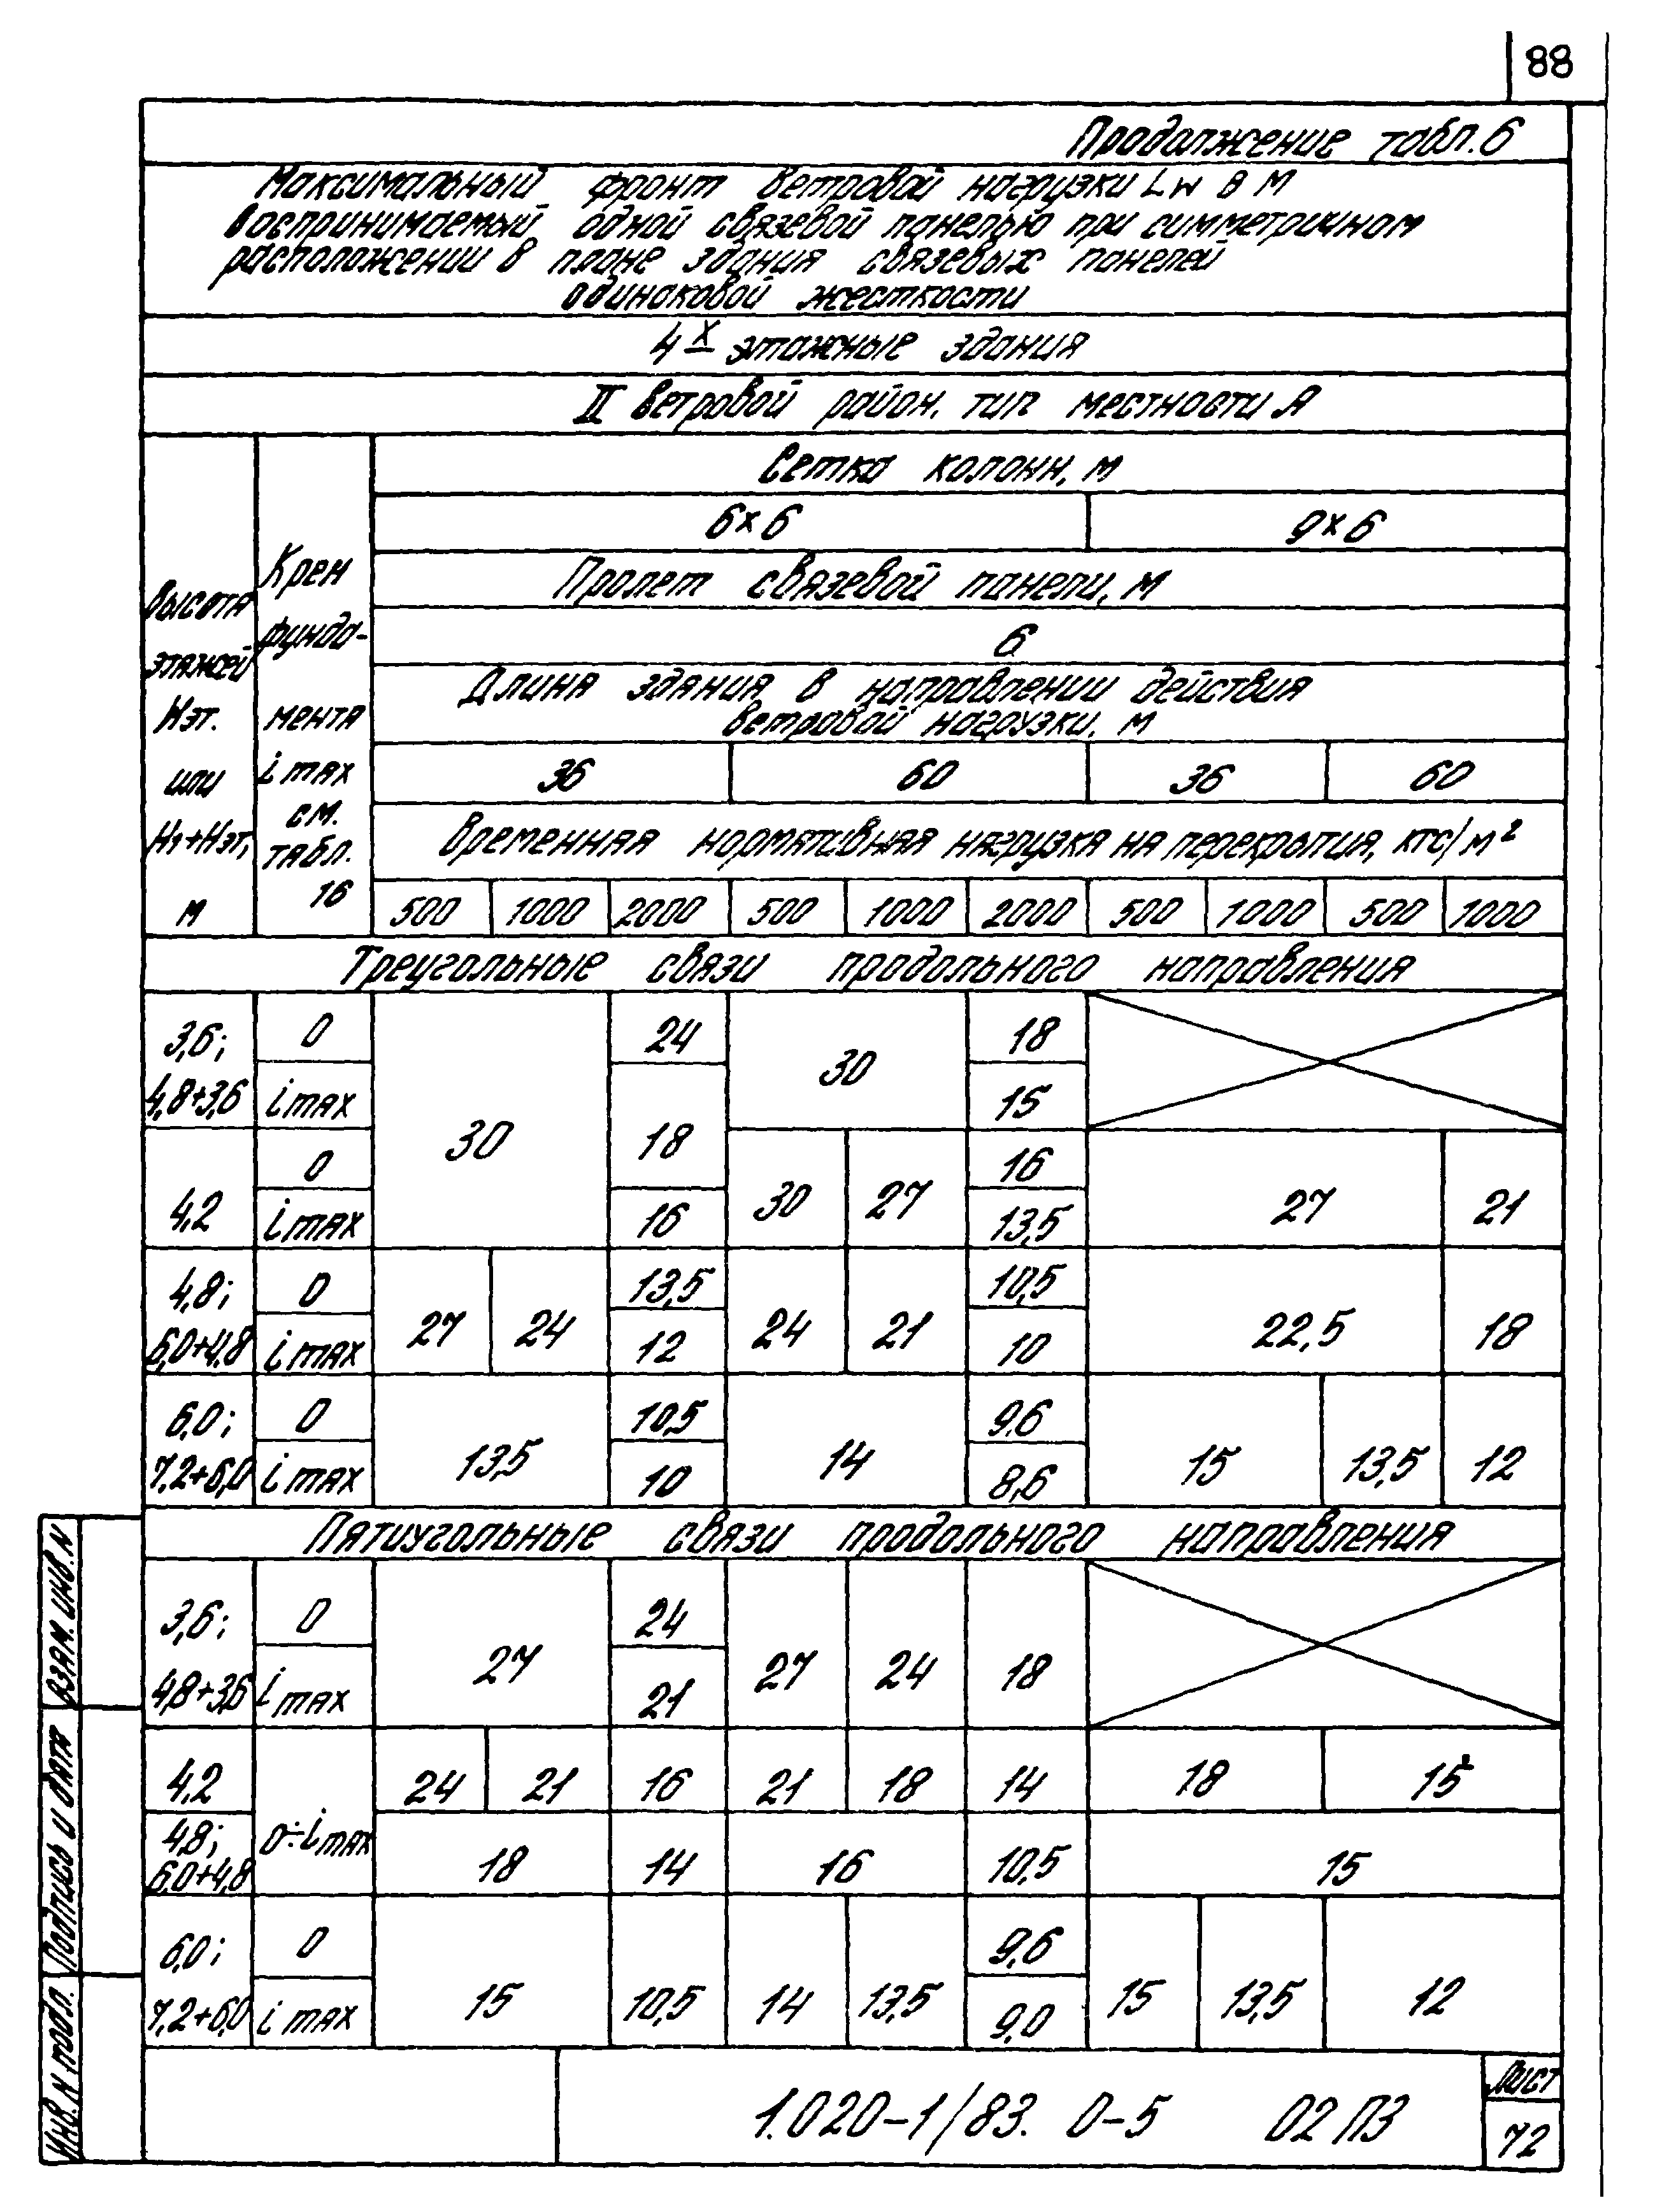 88
Продолжение табл.6
Максимальный фронт ветровой нагрузки Lw в м
воспринимаемый одной связевой панелью при симметричном
расположении в плане здания связевых панелей
одинаковой жесткости
4х этажные здания
II ветровой район, тип местности А
Высота
этажей
Нэт.
или
Н1+Нэт,
м
Крен
фунда-
мента
i max
см.
табл.
16
Сетка колонн, м
6×6 9×6
Пролет связевой панели, м
6
Длина здания в направлении действия
ветровой нагрузки, м
36 60 36 60
Временная нормативная нагрузка на перекрытия, кгс/м²
500 1000 2000 500 1000 2000 500 1000 500 1000
Треугольные связи продольного направления
3,6; 0 24 18
30
4,8+3,6 i max 15
30 18
0 16
30 27 27 21
4,2 i max 16 13,5
4,8; 0 13,5 10,5
27 24 24 21 22,5 18
6,0+4,8 i max 12 10
6,0; 0 10,5 9,6
13,5 14 15 13,5 12
7,2+6,0 i max 10 8,6
Пятиугольные связи продольного направления
3,6; 0 24
27 27 24 18
4,8+3,6 i max 21
4,2 24 21 16 21 18 14 18 15
0÷i max
4,8;
6,0+4,8 18 14 16 10,5 15
6,0; 0 9,6
15 10,5 14 13,5 15 13,5 12
7,2+6,0 i max 9,0
Взам. инв. N
Подпись и дата
Инв. N подл.
1.020-1/83. 0-5 02 ПЗ
Лист
72